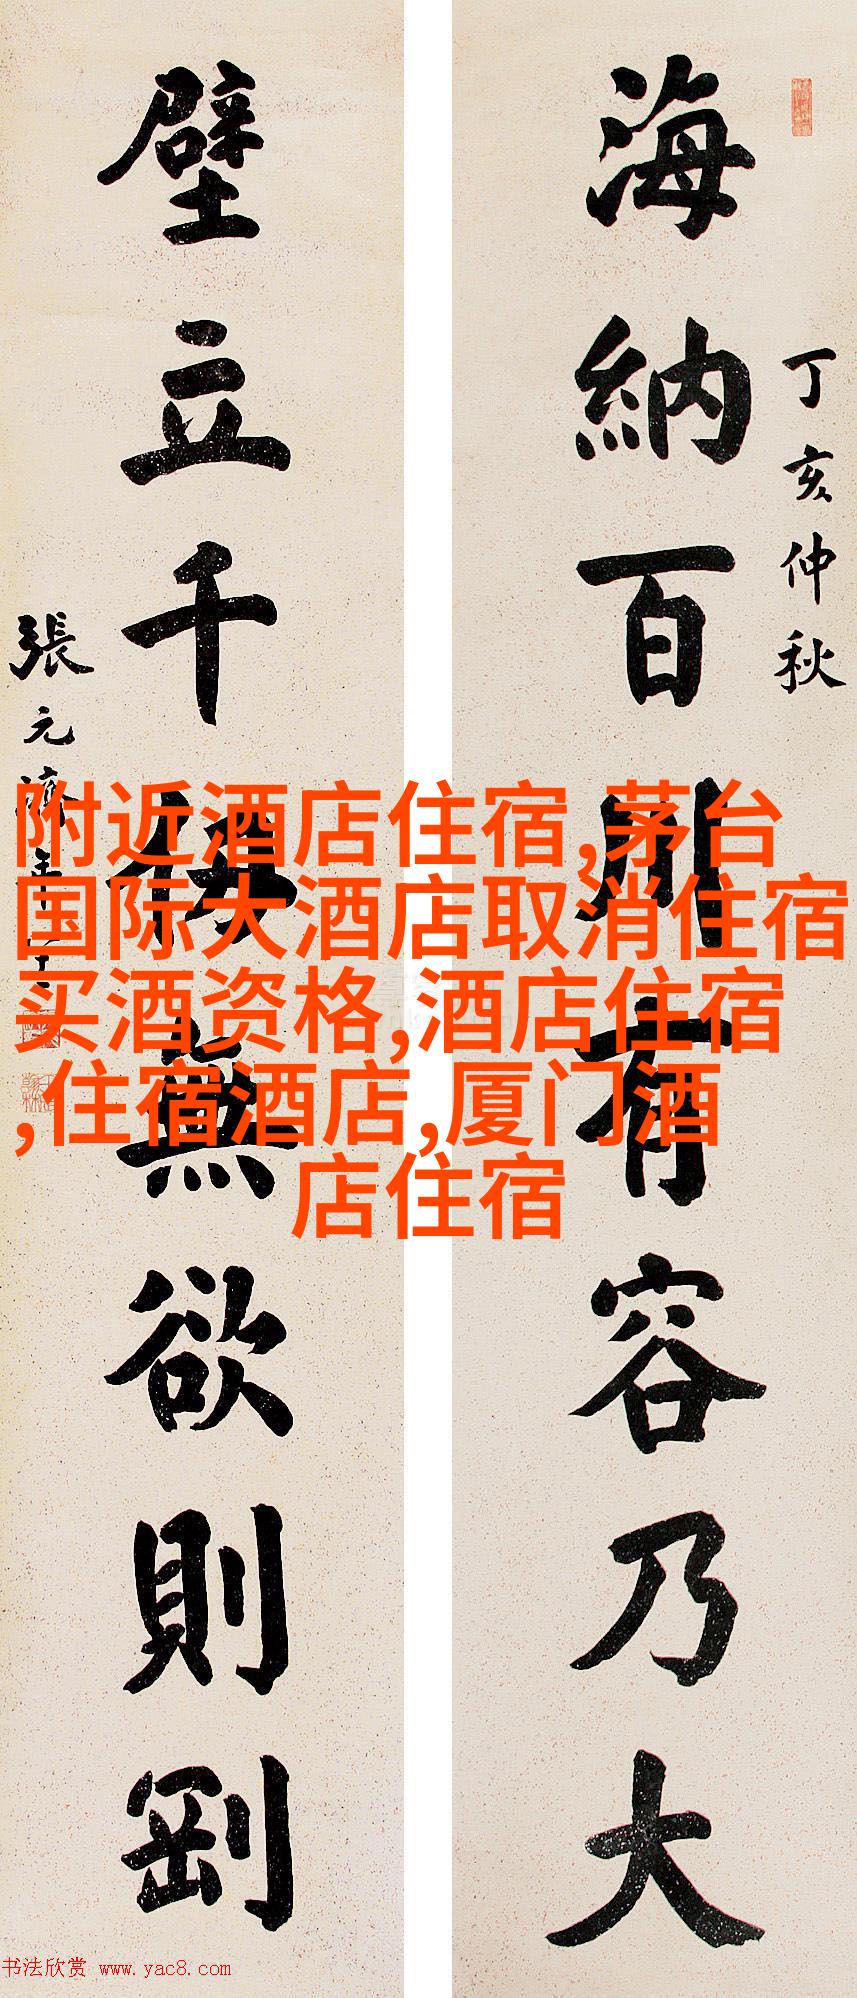 海納百川有容乃大
丁亥仲秋
壁立千仞無欲則剛
張元濟
附近酒店住宿,茅台
国际大酒店取消住宿
买酒资格,酒店住宿
,住宿酒店,厦门酒
店住宿
书法欣赏 www.yac8.com